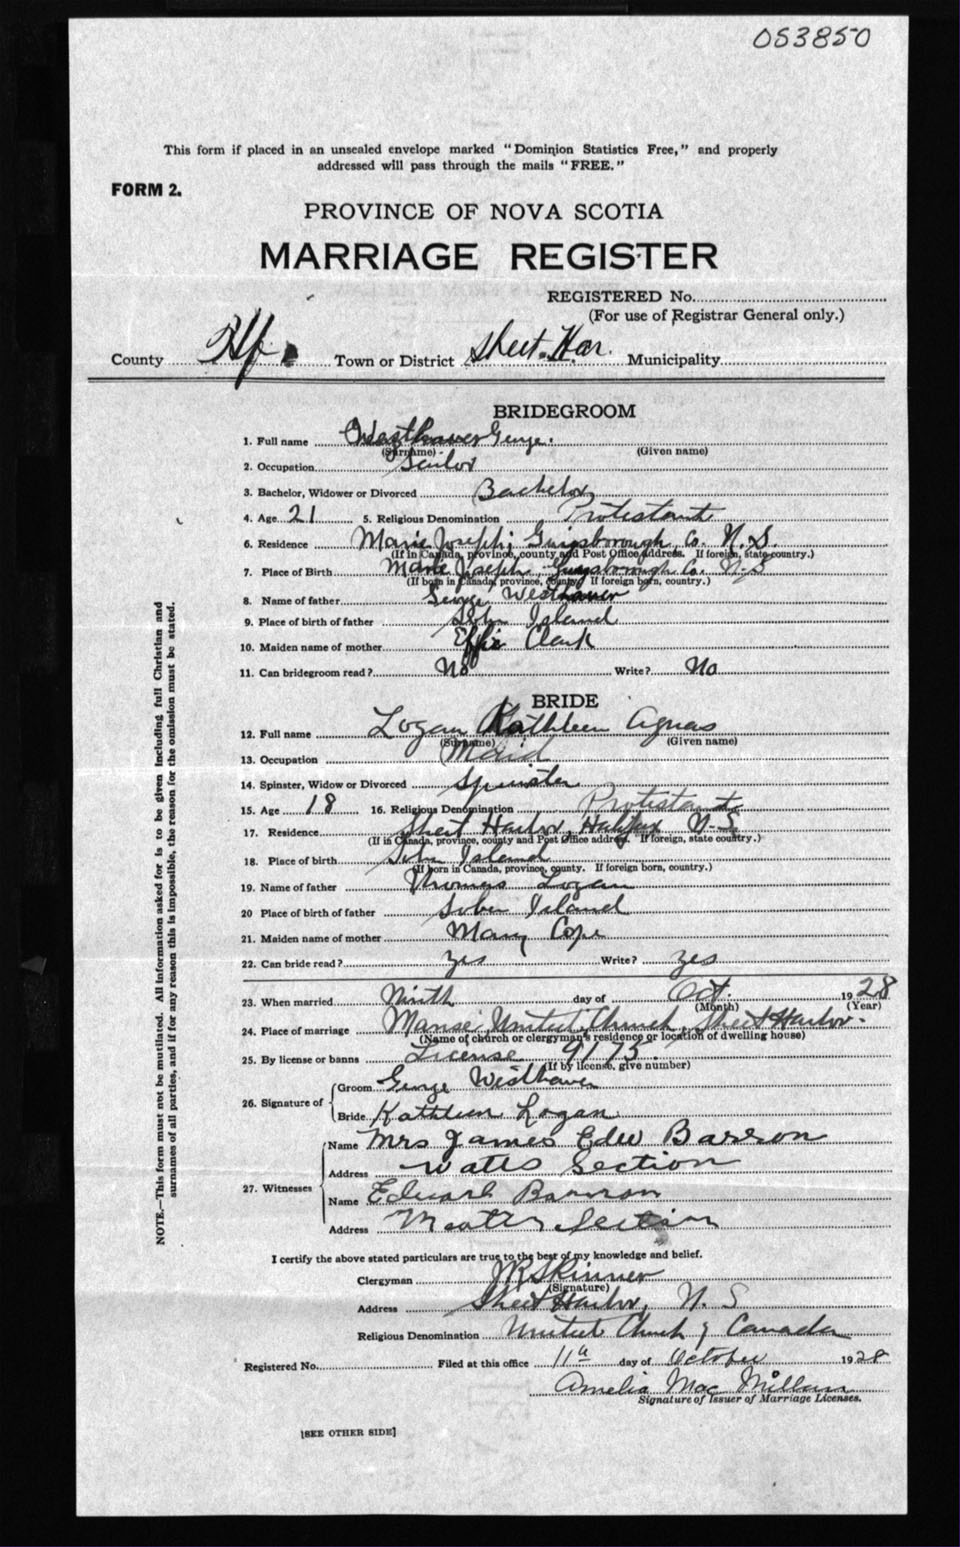 053850
This form if placed in an unsealed envelope marked "Dominion Statistics Free," and properly
addressed will pass through the mails "FREE."
FORM 2.
PROVINCE OF NOVA SCOTIA
MARRIAGE REGISTER
REGISTERED No.
(For use of Registrar General only.)
County Hfx. Town or District Sheet. Har. Municipality
BRIDEGROOM
1. Full name Westhaver George.
(Surname) (Given name)
2. Occupation
3. Bachelor, Widower or Divorced Bachelor
4. Age 21 5. Religious Denomination Protestant
6. Residence Marie Joseph, Guysborough Co. N.S.
(If in Canada, province, county and Post Office address. If foreign, state country.)
7. Place of Birth Marie Joseph Guysborough Co. N.S
(If born in Canada, province, county. If foreign born, country.)
8. Name of father George Westhaver
9. Place of birth of father Island
10. Maiden name of mother Effie Clark
11. Can bridegroom read? No Write? No
BRIDE
12. Full name Logan Kathleen Agnas
(Surname) (Given name)
13. Occupation Maid
14. Spinster, Widow or Divorced Spinster
15. Age 18 16. Religious Denomination Protestant
17. Residence Sheet Harbor, Halifax N-S
(If in Canada, province, county and Post Office address. If foreign, state country.)
18. Place of birth Sober Island
(If born in Canada, province, county. If foreign born, country.)
19. Name of father Thomas Logan
20 Place of birth of father Sober Island
21. Maiden name of mother Mary Cope
22. Can bride read? yes Write? yes
23. When married Ninth day of Oct. 1928
(Month) (Year)
24. Place of marriage Manse, United Church, Sheet Harbor.
(Name of church or clergyman's residence or location of dwelling house)
25. By license or banns License 9175.
(If by license, give number)
26. Signature of Groom George Westhaver
Bride Kathleen Logan
27. Witnesses Name Mrs James Edw Barron
Address Watts Section
Name Edward Barron
Address Watts Section
I certify the above stated particulars are true to the best of my knowledge and belief.
Clergyman JR Skinner
(Signature)
Address Sheet Harbor, N. S
Religious Denomination United Church of Canada
Registered No. Filed at this office 11th day of October 1928
Amelia Mac Millan
Signature of Issuer of Marriage Licenses.
[SEE OTHER SIDE]
NOTE.—This form must not be mutilated. All information asked for is to be given including full Christian and
surnames of all parties, and if for any reason this is impossible, the reason for the omission must be stated.